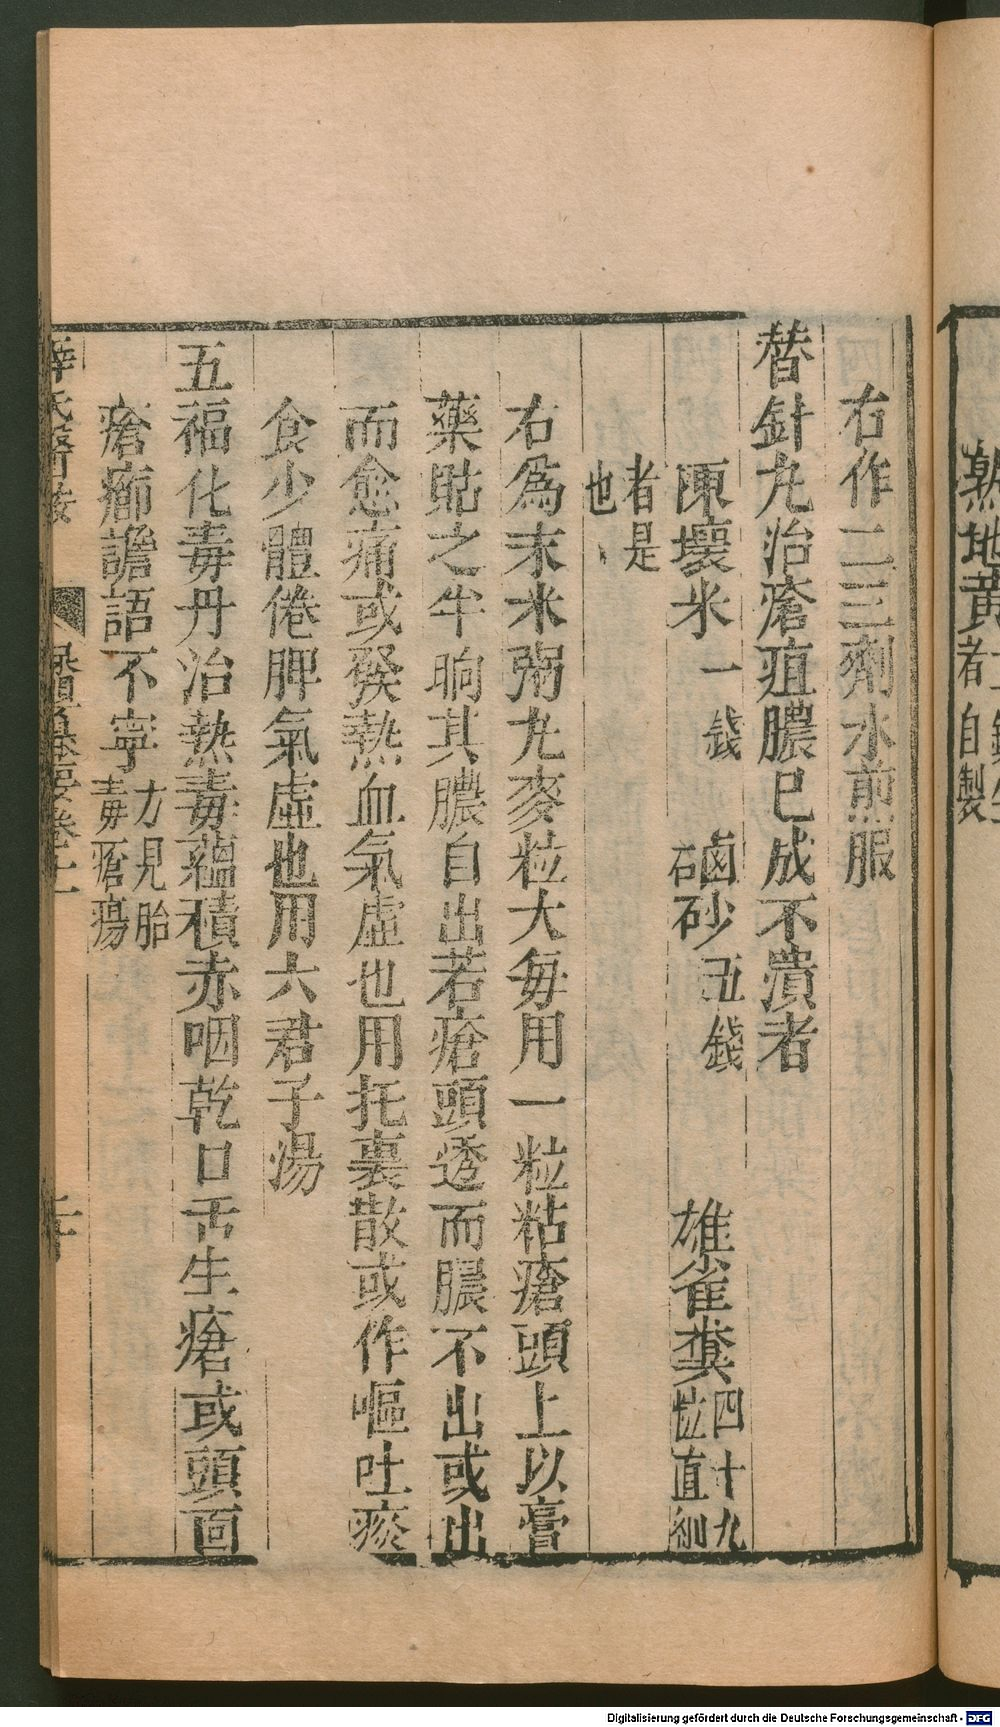 熟地黃
者自製
右作二三劑水煎服
替針丸治瘡疽膿已成不潰者
陳壞米一錢
硇砂五錢
雄雀糞四十九
粒直細
者是
也
右爲末米粥丸麥粒大每用一粒粘瘡頭上以膏
藥貼之半晌其膿自出若瘡頭透而膿不出或出
而愈痛或發熱血氣虛也用托裏散或作嘔吐痰
食少體倦脾氣虛也用六君子湯
五福化毒丹治熱毒蘊積赤咽乾口舌生瘡或頭面
瘡癤譫語不寧方見胎
毒瘡瘍
薛氏醫按
卷上
Digitalisierung gefördert durch die Deutsche Forschungsgemeinschaft - DFG